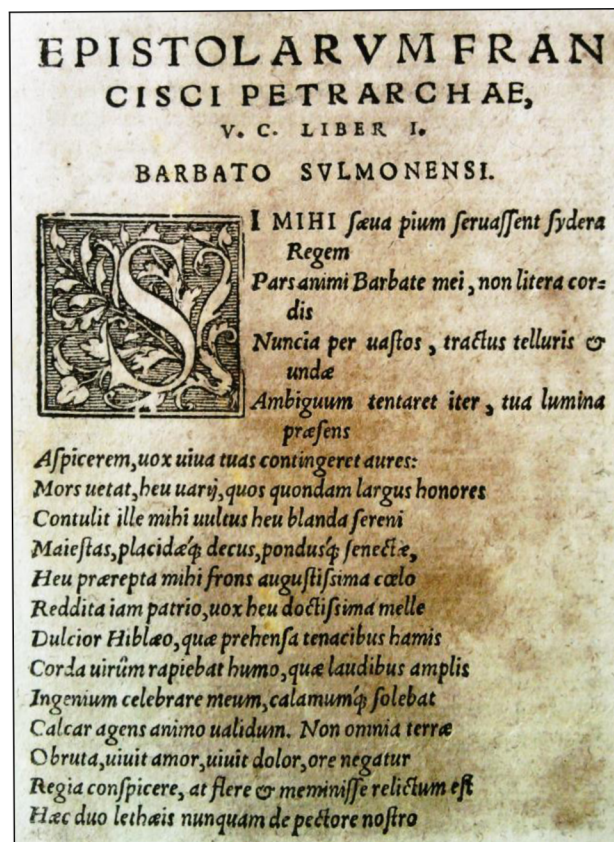 EPISTOLARVM FRAN
CISCI PETRARCHAE,
V. C. LIBER I.
BARBATO SVLMONENSI.
SI MIHI ſæua pium ſeruaſſent ſydera
Regem
Pars animi Barbate mei, non litera cor⸗
dis
Nuncia per uaſtos, tractus telluris &
undæ
Ambiguum tentaret iter, tua lumina
præſens
Aſpicerem, uox uiua tuas contingeret aures:
Mors uetat, heu uarij, quos quondam largus honores
Contulit ille mihi uultus heu blanda ſereni
Maieſtas, placidæq́; decus, pondusq́; ſenectæ,
Heu prærepta mihi frons auguſtiſſima cœlo
Reddita iam patrio, uox heu doctiſſima melle
Dulcior Hiblæo, quæ prehenſa tenacibus hamis
Corda uirûm rapiebat humo, quæ laudibus amplis
Ingenium celebrare meum, calamumq́; ſolebat
Calcar agens animo ualidum. Non omnia terræ
Obruta, uiuit amor, uiuit dolor, ore negatur
Regia conſpicere, at flere & meminiſſe relictum eſt
Hæc duo lethæis nunquam de pectore noſtro